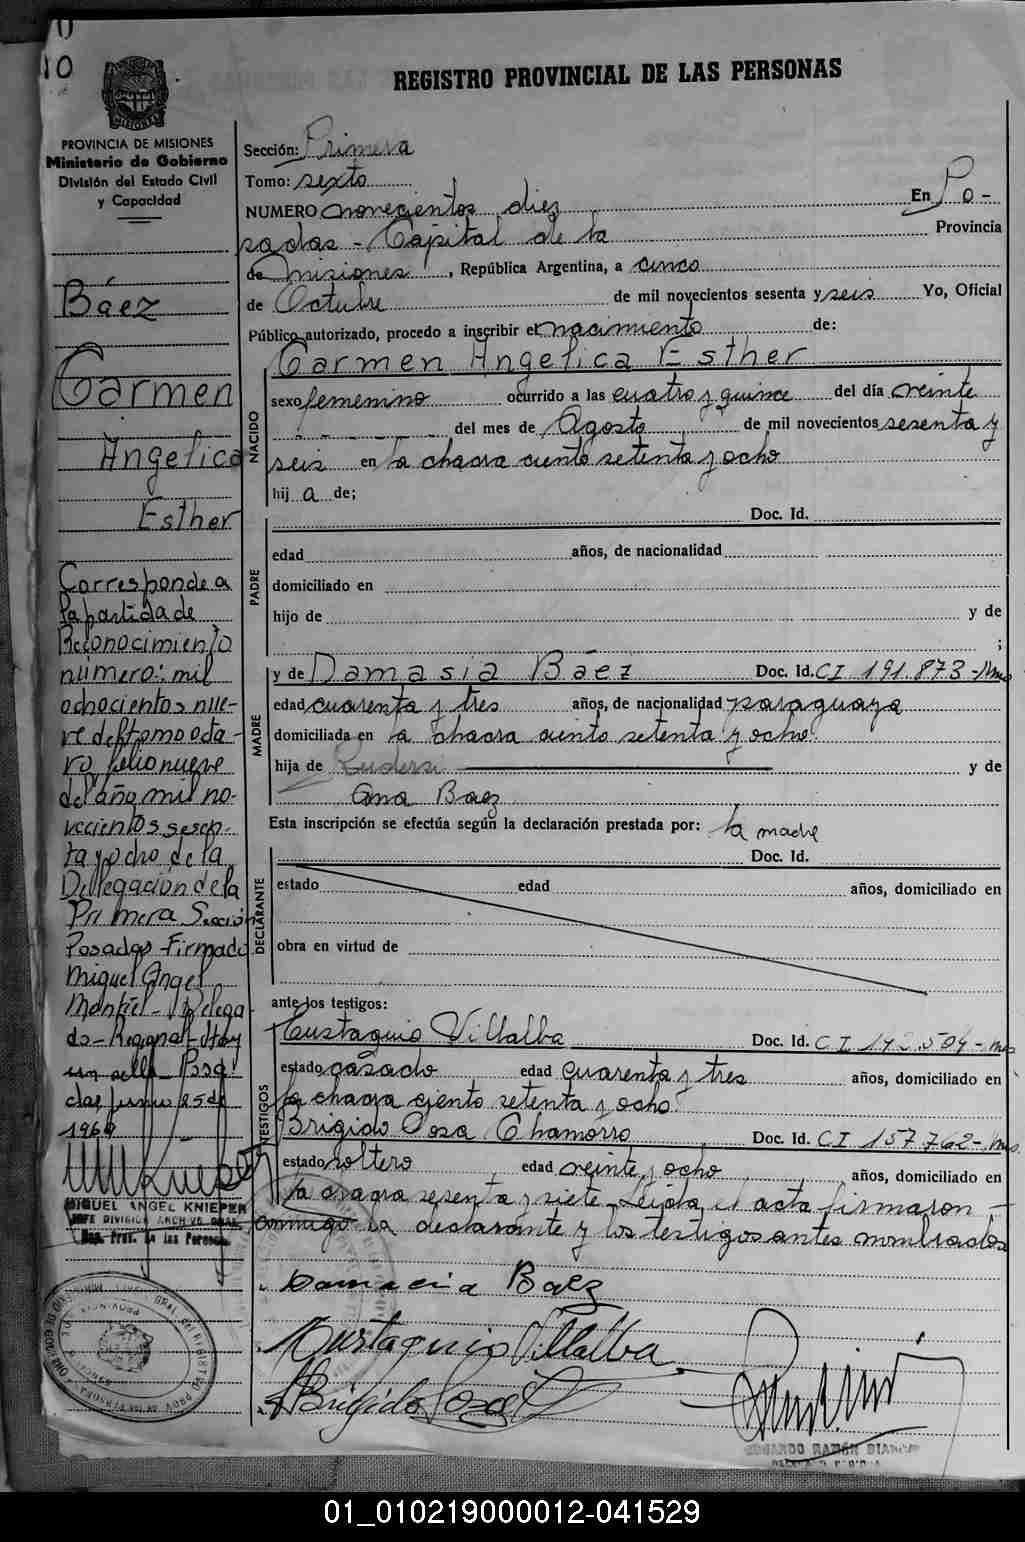 10
REGISTRO PROVINCIAL DE LAS PERSONAS
MISIONES
PROVINCIA DE MISIONES
Ministerio de Gobierno
División del Estado Civil
y Capacidad
Báez
Carmen
Angelica
Esther
Corresponde a
la partida de
Reconocimiento
número: mil
ochocientos nue-
ve del tomo octa-
vo folio nueve
del año mil no-
vecientos sesen-
ta y ocho de la
Delegación de la
Primera Sección
Posadas - Firmado
Miguel Angel
Montiel - Delega-
do - Regional - Hay
un sello - Posa-
das Junio 25 de
196
MIGUEL ANGEL KNIEPER
JEFE DIVISION ARCHIVO GRAL.
Reg. Prov. de las Personas
Sección: Primera
Tomo: sexto
NUMERO novecientos diez En Po-
sadas - Capital de la Provincia
de Misiones, República Argentina, a cinco
de Octubre de mil novecientos sesenta y seis Yo, Oficial
Público autorizado, procedo a inscribir el nacimiento de:
Carmen Angelica Esther
NACIDO
sexo femenino ocurrido a las cuatro y quince del día veinte
del mes de Agosto de mil novecientos sesenta y
seis en la chacra ciento setenta y ocho
hij a de;
Doc. Id.
PADRE
edad años, de nacionalidad
domiciliado en
hijo de y de
;
y de Damasia Báez Doc. Id. CI 191.873 - Mnes
MADRE
edad cuarenta y tres años, de nacionalidad paraguaya
domiciliada en la chacra ciento setenta y ocho
hija de y de
Ana Baez
Esta inscripción se efectúa según la declaración prestada por: la madre
Doc. Id.
DECLARANTE
estado edad años, domiciliado en
obra en virtud de
ante los testigos:
Eustaquio Villalba Doc. Id. CI 142.504 - Mnes
TESTIGOS
estado casado edad cuarenta y tres años, domiciliado en
la chacra ciento setenta y ocho
Brigido Sosa Chamorro Doc. Id. CI 157.762 - Mnes.
estado soltero edad veinte y ocho años, domiciliado en
la chacra sesenta y siete Leida el acta firmaron
conmigo la declarante y los testigos antes nombrados
Damacia Baez
Eustaquio Villalba
Brigido Sosa
EDGARDO RAMÓN
01_010219000012-041529